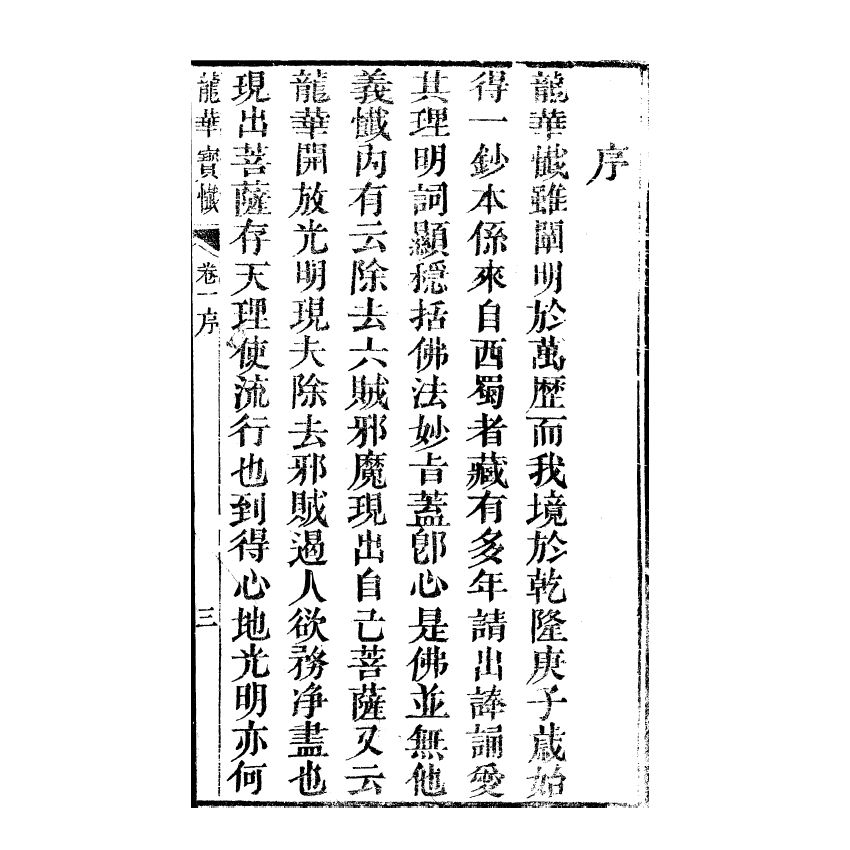 序
龍華懺雖闡明於萬歷而我境於乾隆庚子歲始
得一鈔本係來自西蜀者藏有多年請出諱誦愛
其理明詞顯穩括佛法妙旨蓋卽心是佛並無他
義懺內有云除去六賊邪魔現出自己菩薩又云
龍華開放光明現夫除去邪賊遏人欲務净盡也
現出菩薩存天理使流行也到得心地光明亦何
龍華寶懺
卷一序
三